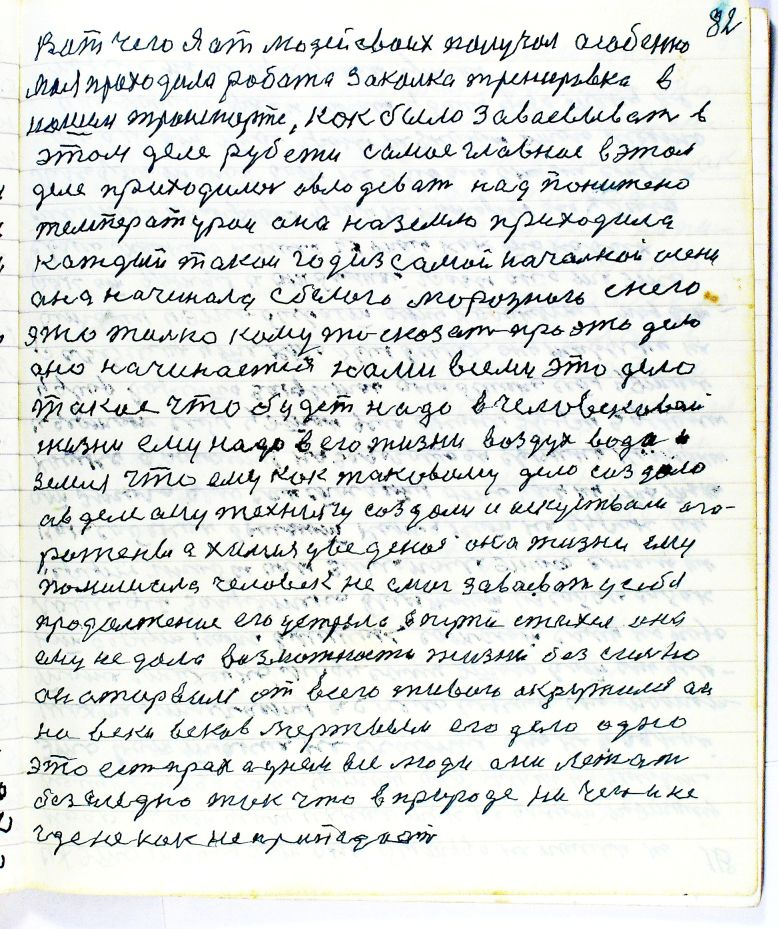 82
Вот чего я от людей своих получал особенно
моя проходила робота заколка тренировка в
нашим транспорте, кок было заваевиват в
этом деле рубежи самое главное в этом
деле приходилос овлодеват над понижено
температурои она на землю приходила
каждый такои год из самой началной осени
она начинала с белого морозного снего
это толко кому то сказат про это дело
оно начинается нами всеми это дело
такое что будет надо в человековой
жизни ему надо в его жизни воздух вода и
земля что ему кок таковому дело создало
ов деле ему технику создали и искуствам ого-
рожены а химия уведеной она жизни ему
помишала человек не смог заваеват у себя
продолжение его устрела в пути стихея она
ему не дола возможности жизни без силно
он оторвалс от всего живого окружился он
на веки веков мертвым его дело одно
это ест прах а в нем все люди они лежат
безследно так что в природе ни чего и не
где не кок не пропадоат